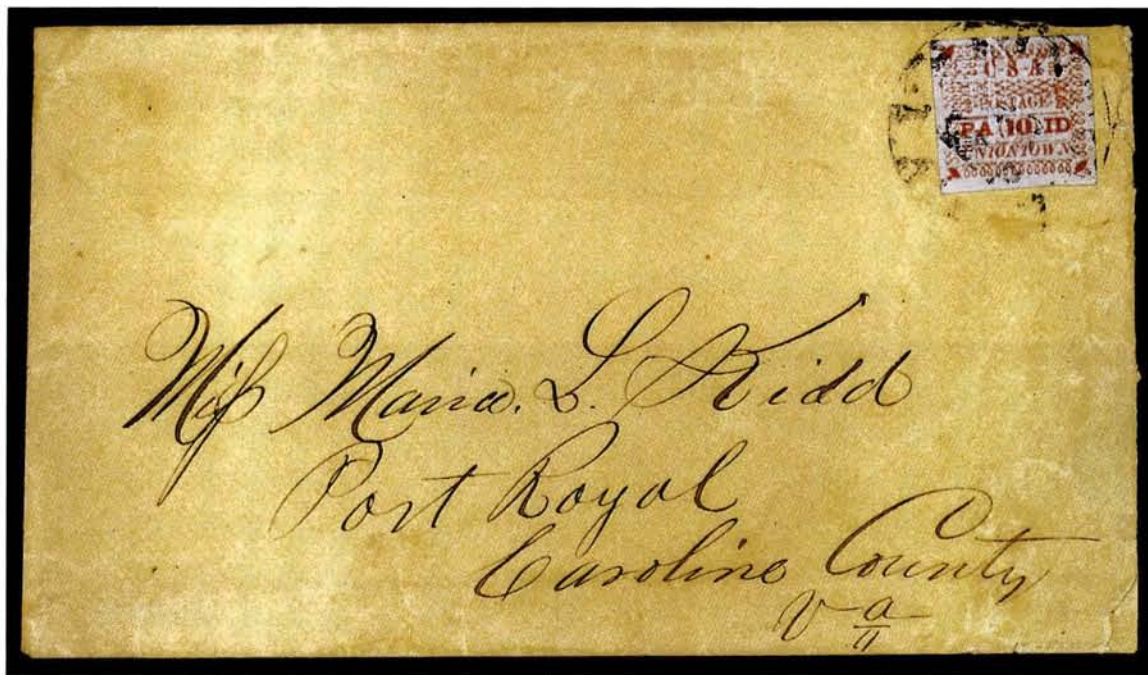 C S A
POSTAGE
PA 10 ID
UNIONTOWN
Miſs Maria. L. Kidd
Port Royal
Caroline County
Va